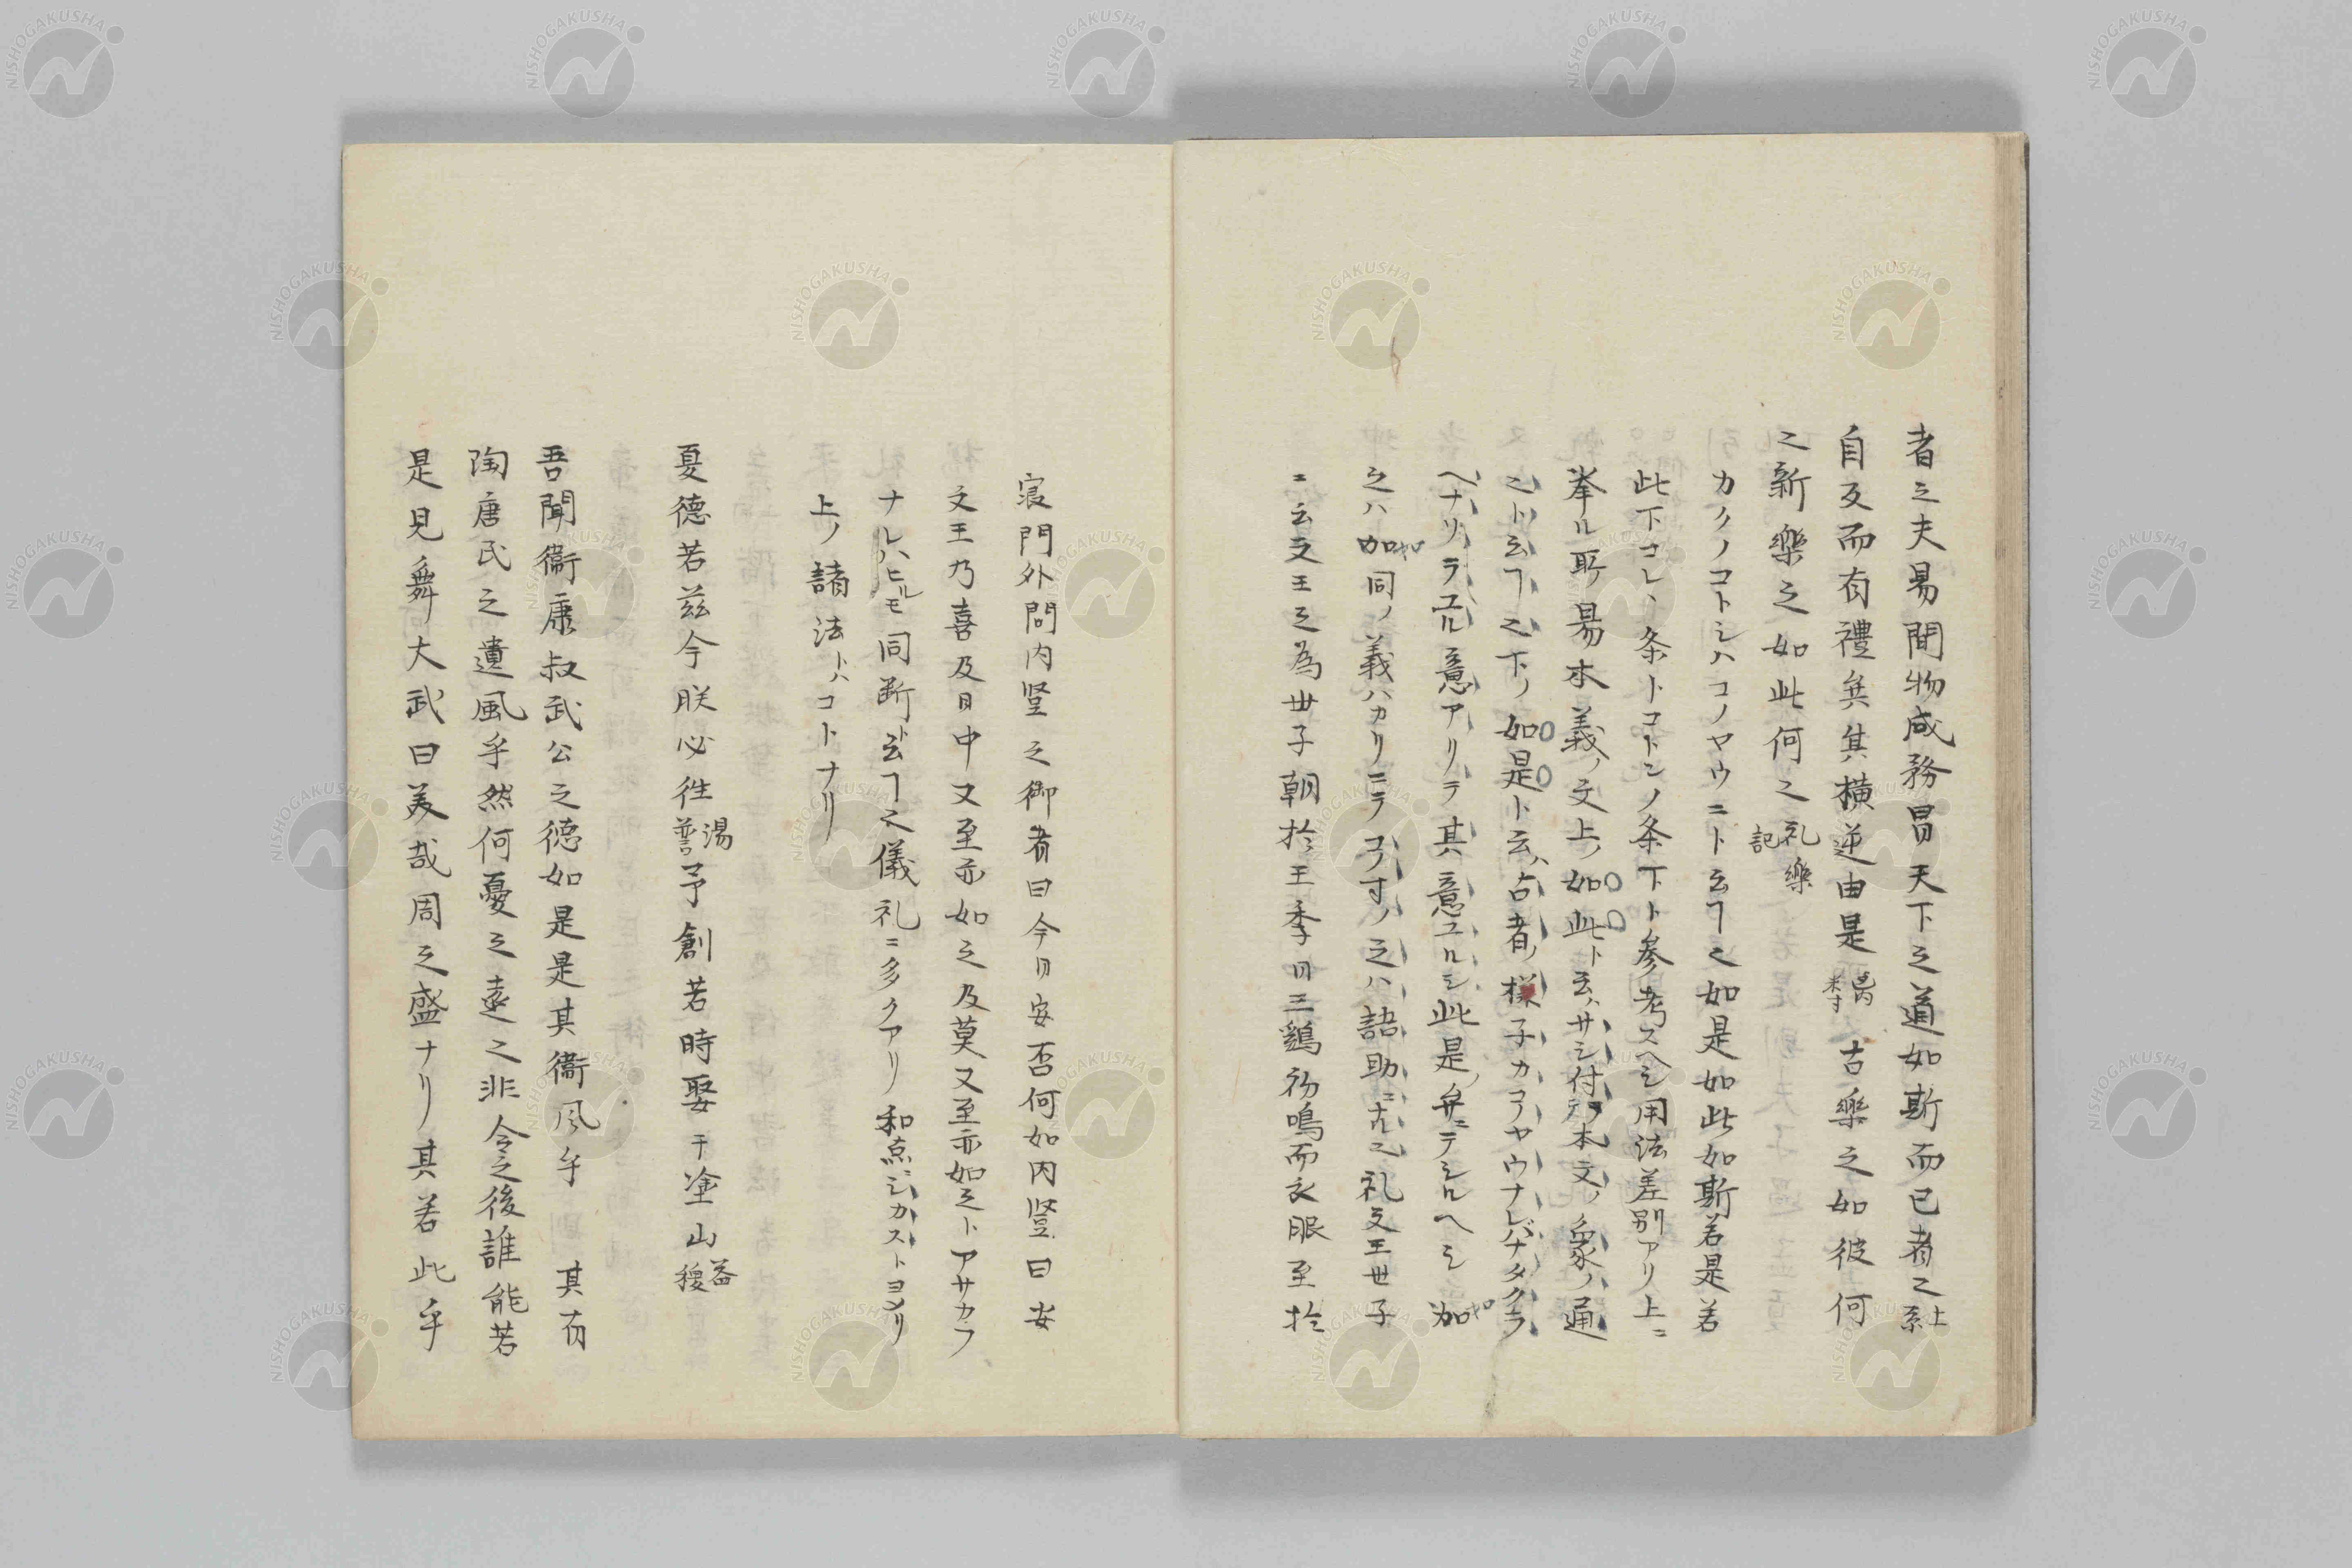 者之夫易開物成務冒天下之道如斯而已者之上系
自反而有禮矣其横逆由是 孟丙末寸 古樂之如彼何
之新樂之如此何之礼樂記
カクノコトシハコノヤウニト云ヿ之如是如此如斯若是若
此下コレヽ条トコトシノ条下ト参考スヘシ用法差別アリ上ニ
挙ル所易本義ノ文上ノ如此ト云ハサシ付タ本文ノ象ノ通
之ト云ヿ之下ノ如是ト云ハ占者ノ様子カコヤウナレバナタクラ
ヘナリラユル意アリラ其意ユルシ此是ノ弁ニテシルヘシ 如
之ハ如同ノ義ハカリニテコノ寸ノ之ハ語助ニ九之礼文王世子
ニ云文王之為世子朝於王季日三鷄初鳴而衣服至於
寝門外問内竪之御者曰今日安否何如内竪曰安
文王乃喜及日中又至亦如之及莫又至亦如之トアサカラ
ナレハヒルモ同断ト云ヿ之儀礼ニ多クアリ 和点ニシカストヨメリ
上ノ諸法トハコトナリ
夏徳若茲今朕必徃湯誓予創若時娶于塗山益稷
吾聞衞康叔武公之徳如是是其衞風乎 其有
陶唐氏之遺風乎然何憂之遠之非令之後誰能若
是見舞大武曰美哉周之盛ナリ其若此乎